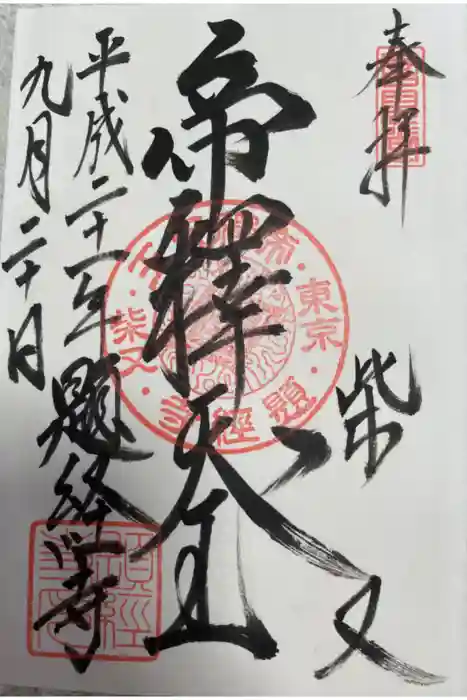 奉拝
柴又
帝釋天
題経寺
平成二十一年
九月二十日
東京
柴又
題經寺